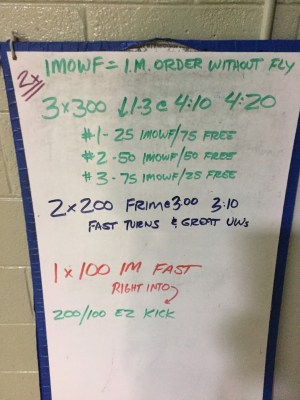 1MOWF = I.M. ORDER WITHOUT FLY
2x
3x300 ↓1-3 @ 4:10 4:20
#1- 25 IMOWF/75 FREE
#2 -50 IMOWF/50 FREE
#3- 75 IMOWF/25 FREE
2x200 FRIME 3:10
FAST TURNS & GREAT UWs
1x100 IM FAST
RIGHT INTO
200/100 EZ KICK